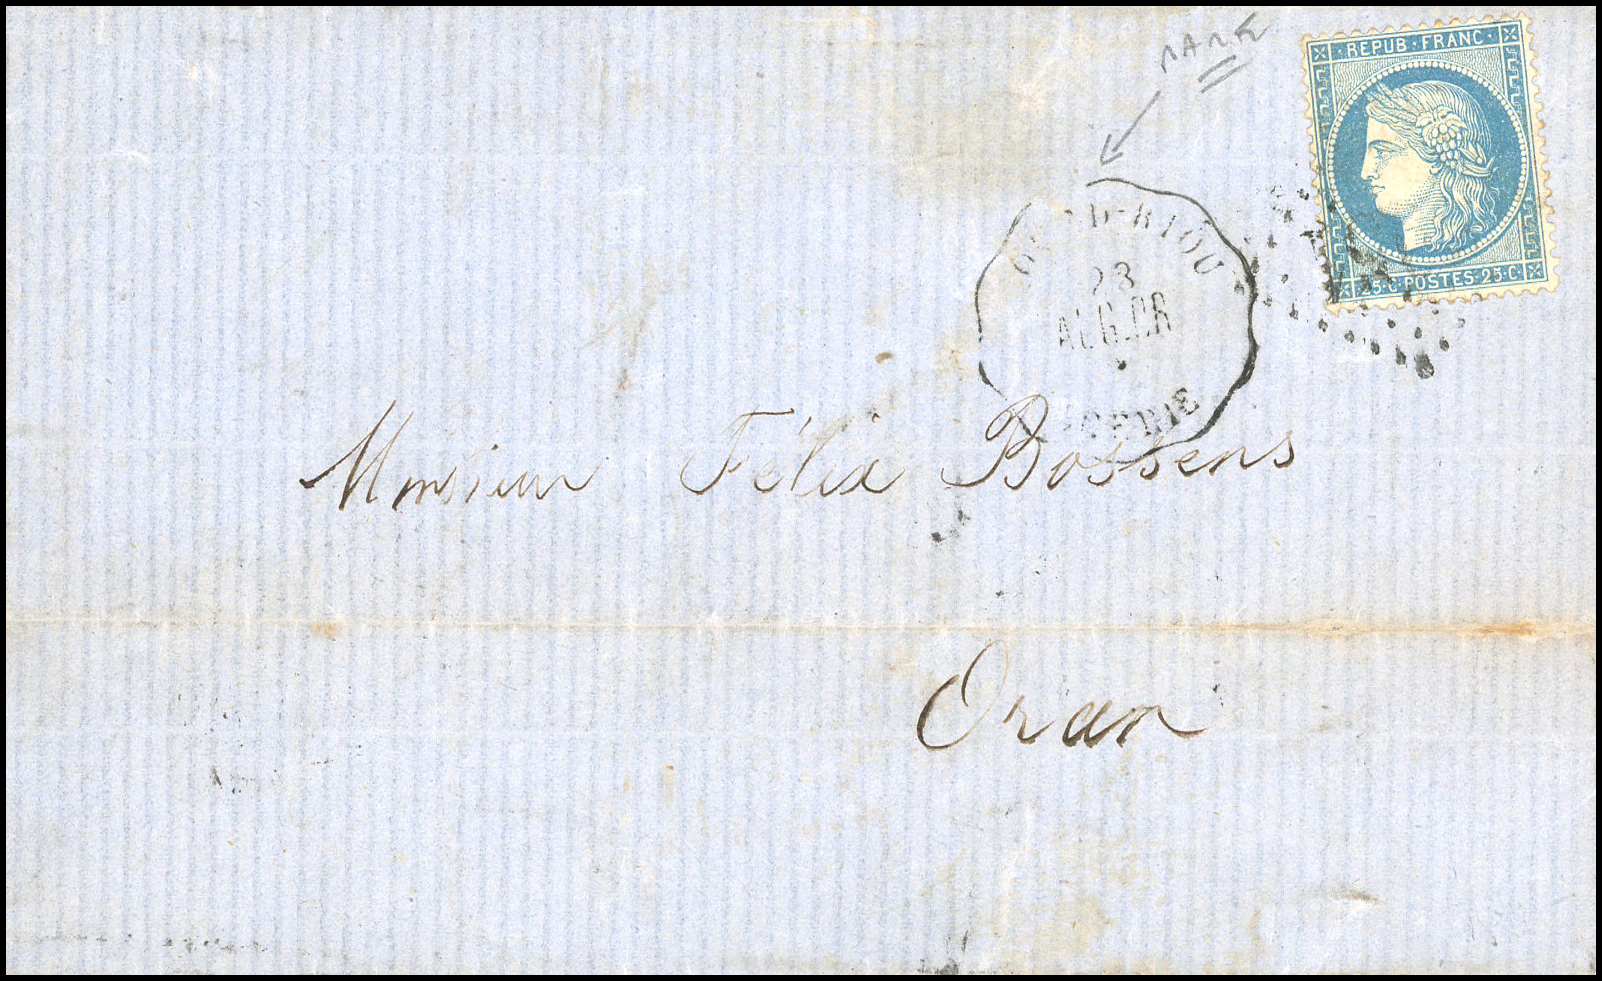 RARE
REPUB·FRANC·
25·C·POSTES·25·C·
OUED-RIOU
23
ALG.OR
ALGERIE
Monsieur Félix Bossens
Oran